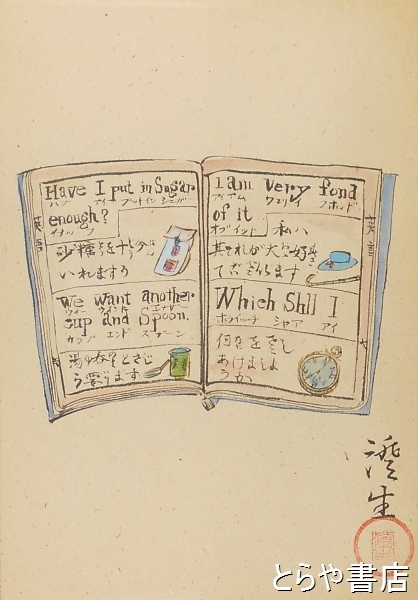 Have I put in Sugar
ハブ アイ プットイン シュガー
enough?
イナッフ
砂糖を十分
いれますか
We want another
ウィー ウイント エナザー
cup and Spoon.
カップ エンド スプーン
湯のみとさじ
が要ります
英語
I am very fond
アイアム ウェリイ フホンド
of it
オブ イット
私ハ
其れが大大好き
でございます
Which Shll I
ホゥイッチ シャア アイ
何をさし
あげましょ
うか
英語
澄生
とらや書店